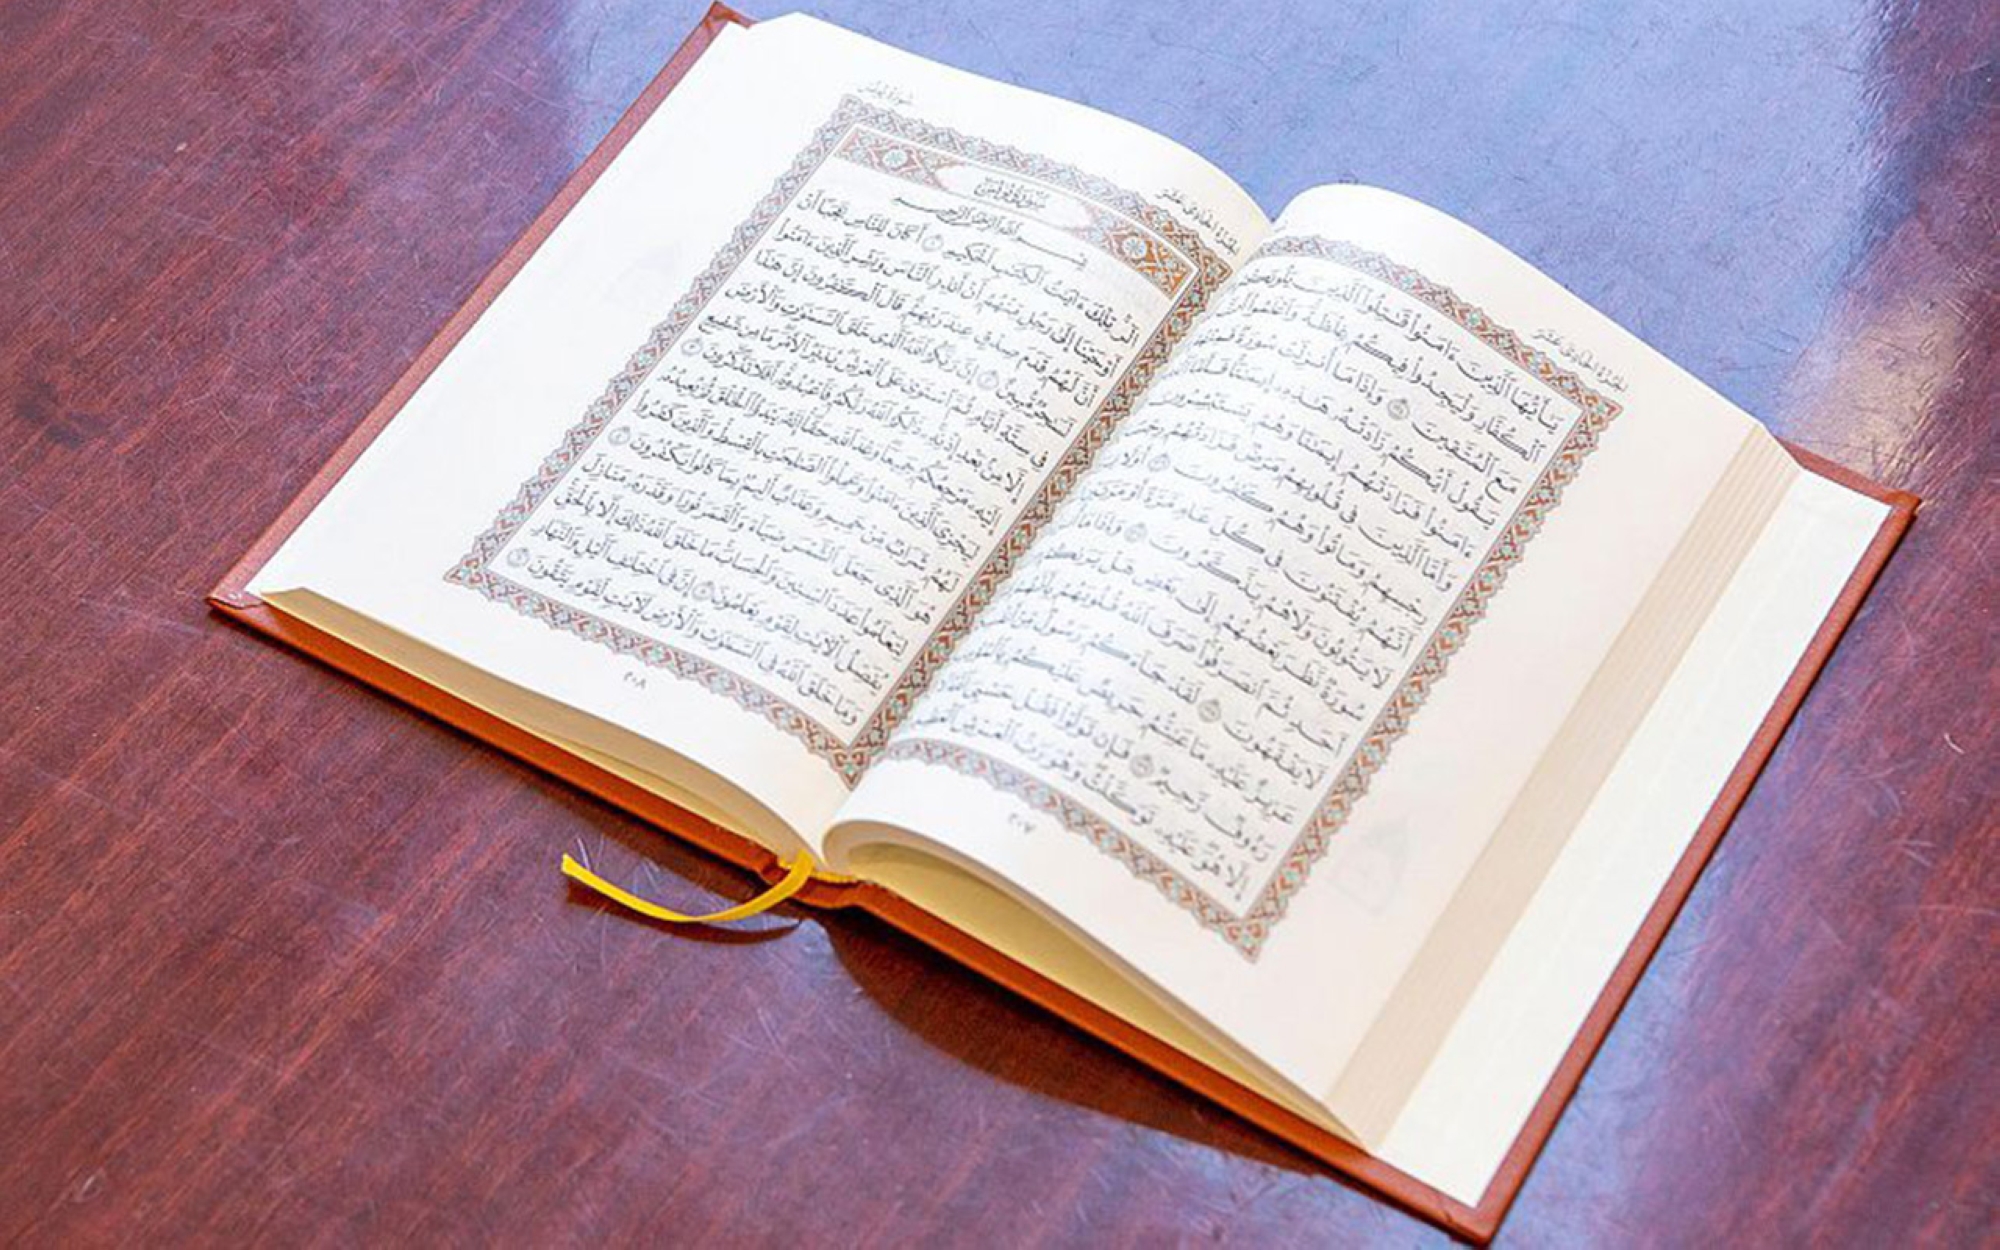 الجزء الحادي عشر
يَٰٓأَيُّهَا ٱلَّذِينَ ءَامَنُوا۟ قَٰتِلُوا۟ ٱلَّذِينَ
ٱلْكُفَّارِ وَلْيَجِدُوا۟ فِيكُمْ غِلْظَةً وَٱعْلَمُوٓا۟
مَعَ ٱلْمُتَّقِينَ ١٢٣ وَإِذَا مَآ أُنزِلَتْ سُورَةٌ
يَقُولُ أَيُّكُمْ زَادَتْهُ هَٰذِهِۦٓ إِيمَٰنًا فَأَمَّا
ءَامَنُوا۟ فَزَادَتْهُمْ إِيمَٰنًا وَهُمْ يَسْتَبْشِرُونَ
وَأَمَّا ٱلَّذِينَ فِى قُلُوبِهِم مَّرَضٌ فَزَادَتْهُمْ
رِجْسِهِمْ وَمَاتُوا۟ وَهُمْ كَٰفِرُونَ ١٢٥ أَوَلَا
أَنَّهُمْ يُفْتَنُونَ فِى كُلِّ عَامٍ مَّرَّةً أَوْ مَرَّتَيْنِ
لَا يَتُوبُونَ وَلَا هُمْ يَذَّكَّرُونَ ١٢٦ وَإِذَا مَآ
سُورَةٌ نَّظَرَ بَعْضُهُمْ إِلَىٰ بَعْضٍ هَلْ
أَحَدٍ ثُمَّ ٱنصَرَفُوا۟ صَرَفَ ٱللَّهُ قُلُوبَهُم
لَّا يَفْقَهُونَ ١٢٧ لَقَدْ جَآءَكُمْ رَسُولٌ
عَزِيزٌ عَلَيْهِ مَا عَنِتُّمْ حَرِيصٌ عَلَيْكُم
رَءُوفٌ رَّحِيمٌ ١٢٨ فَإِن تَوَلَّوْا۟ فَقُلْ حَسْبِىَ
إِلَّا هُوَ عَلَيْهِ تَوَكَّلْتُ وَهُوَ رَبُّ ٱلْعَرْشِ
٢٠٧
الجزء الحادي عشر
سورة يونس
سُورَةُ يُونُسَ
بِسْمِ ٱللَّهِ ٱلرَّحْمَٰنِ ٱلرَّحِيمِ
الٓر تِلْكَ ءَايَٰتُ ٱلْكِتَٰبِ ٱلْحَكِيمِ ١ أَكَانَ لِلنَّاسِ عَجَبًا أَنْ
أَوْحَيْنَآ إِلَىٰ رَجُلٍ مِّنْهُمْ أَنْ أَنذِرِ ٱلنَّاسَ وَبَشِّرِ ٱلَّذِينَ ءَامَنُوٓا۟
أَنَّ لَهُمْ قَدَمَ صِدْقٍ عِندَ رَبِّهِمْ قَالَ ٱلْكَٰفِرُونَ إِنَّ هَٰذَا
لَسَٰحِرٌ مُّبِينٌ ٢ إِنَّ رَبَّكُمُ ٱللَّهُ ٱلَّذِى خَلَقَ ٱلسَّمَٰوَٰتِ وَٱلْأَرْضَ
فِى سِتَّةِ أَيَّامٍ ثُمَّ ٱسْتَوَىٰ عَلَى ٱلْعَرْشِ يُدَبِّرُ ٱلْأَمْرَ مَا مِن شَفِيعٍ
إِلَّا مِنۢ بَعْدِ إِذْنِهِۦ ذَٰلِكُمُ ٱللَّهُ رَبُّكُمْ فَٱعْبُدُوهُ أَفَلَا تَذَكَّرُونَ ٣
إِلَيْهِ مَرْجِعُكُمْ جَمِيعًا وَعْدَ ٱللَّهِ حَقًّا إِنَّهُۥ يَبْدَؤُا۟ ٱلْخَلْقَ ثُمَّ يُعِيدُهُۥ
لِيَجْزِىَ ٱلَّذِينَ ءَامَنُوا۟ وَعَمِلُوا۟ ٱلصَّٰلِحَٰتِ بِٱلْقِسْطِ وَٱلَّذِينَ كَفَرُوا۟
لَهُمْ شَرَابٌ مِّنْ حَمِيمٍ وَعَذَابٌ أَلِيمٌۢ بِمَا كَانُوا۟ يَكْفُرُونَ ٤
هُوَ ٱلَّذِى جَعَلَ ٱلشَّمْسَ ضِيَآءً وَٱلْقَمَرَ نُورًا وَقَدَّرَهُۥ مَنَازِلَ
لِتَعْلَمُوا۟ عَدَدَ ٱلسِّنِينَ وَٱلْحِسَابَ مَا خَلَقَ ٱللَّهُ ذَٰلِكَ إِلَّا بِٱلْحَقِّ
يُفَصِّلُ ٱلْءَايَٰتِ لِقَوْمٍ يَعْلَمُونَ ٥ إِنَّ فِى ٱخْتِلَٰفِ ٱلَّيْلِ وَٱلنَّهَارِ
وَمَا خَلَقَ ٱللَّهُ فِى ٱلسَّمَٰوَٰتِ وَٱلْأَرْضِ لَءَايَٰتٍ لِّقَوْمٍ يَتَّقُونَ ٦
٢٠٨